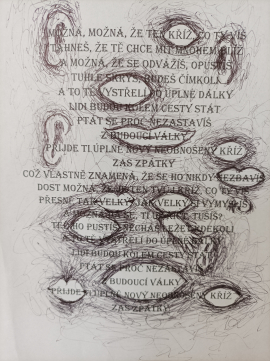 MOŽNÁ, MOŽNÁ, ŽE TEN KŘÍŽ, CO TY VÍŠ
TÁHNEŠ, ŽE TĚ CHCE MÍT MNOHEM BLÍŽ
A MOŽNÁ, ŽE SE ODVÁŽÍŠ, OPUSTÍŠ
TUHLE SKRÝŠ, BUDEŠ ČÍMKOLI
A TO TĚ VYSTŘELÍ DO ÚPLNÉ DÁLKY
LIDI BUDOU KOLEM CESTY STÁT
PTÁT SE PROČ NEZASTAVÍŠ
Z BUDOUCÍ VÁLKY
PŘIJDE TI ÚPLNĚ NOVÝ NEOBNOŠENÝ KŘÍŽ
ZAS ZPÁTKY
COŽ VLASTNĚ ZNAMENÁ, ŽE SE HO NIKDY NEZBAVÍŠ
DOST MOŽNÁ, ŽE JE TEN TVŮJ KŘÍŽ, CO TY VÍŠ
PŘESNĚ TAK VELKÝ, JAK VELKÝ SI VYMYSLÍŠ
A MOŽNÁ, ŽE SE TI ULEVÍ, TUŠÍŠ?
NECHÁŠ LEŽET KDEKOLI
A TO TĚ VYSTŘELÍ DO ÚPLNÉ DÁLKY
LIDI BUDOU KOLEM CESTY STÁT
PTÁT SE PROČ NEZASTAVÍŠ
BUDOUCÍ VÁLKY
PŘIJDE TI ÚPLNĚ NOVÝ NEOBNOŠENÝ KŘÍŽ
ZAS ZPÁTKY